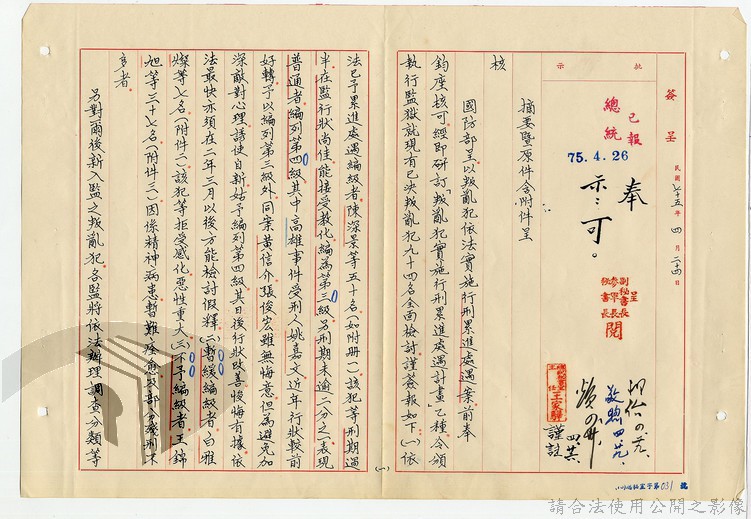 簽呈
民國七十五年四月二十四日
批示
已報
總統
75.4.26
奉
示:可。
呈
副秘書長
參軍長
秘書長
閱
王家驊
謹註
摘要暨原件含附件呈
核
國防部呈以叛亂犯依法實施行刑累進處遇案前奉
鈞座核可經即研訂「叛亂犯實施行刑累進處遇計畫」乙種令頒
執行監獄就現有已決叛亂犯九十四名全面檢討謹簽報如下(一)依
(一)
法已予累進處遇編級者陳深景等五十名(如附冊一)該犯等刑期過
半在監行狀尚佳能接受教化編為第三級另刑期未逾二分之一表現
普通者編列第四級其中高雄事件受刑人姚嘉文近年行狀較前
好轉予以編列第三級外同案黃信介張俊宏雖無悔意但為避免加
深敵對心理誘使自新姑予編列第四級其日後行狀改善悛悔有據依
法最快亦須在二年三月以後方能檢討假釋(二)暫緩編級者:白雅
燦等七名(附件二)該犯等拒受感化惡性重大(三)不予編級者:王錦
旭等三十七名(附件三)因係精神病患暫難痊愈及部分殘刑不
多者
另對爾後新入監之叛亂犯各監將依法辦理調查分類等
031
號
請合法使用公開之影像